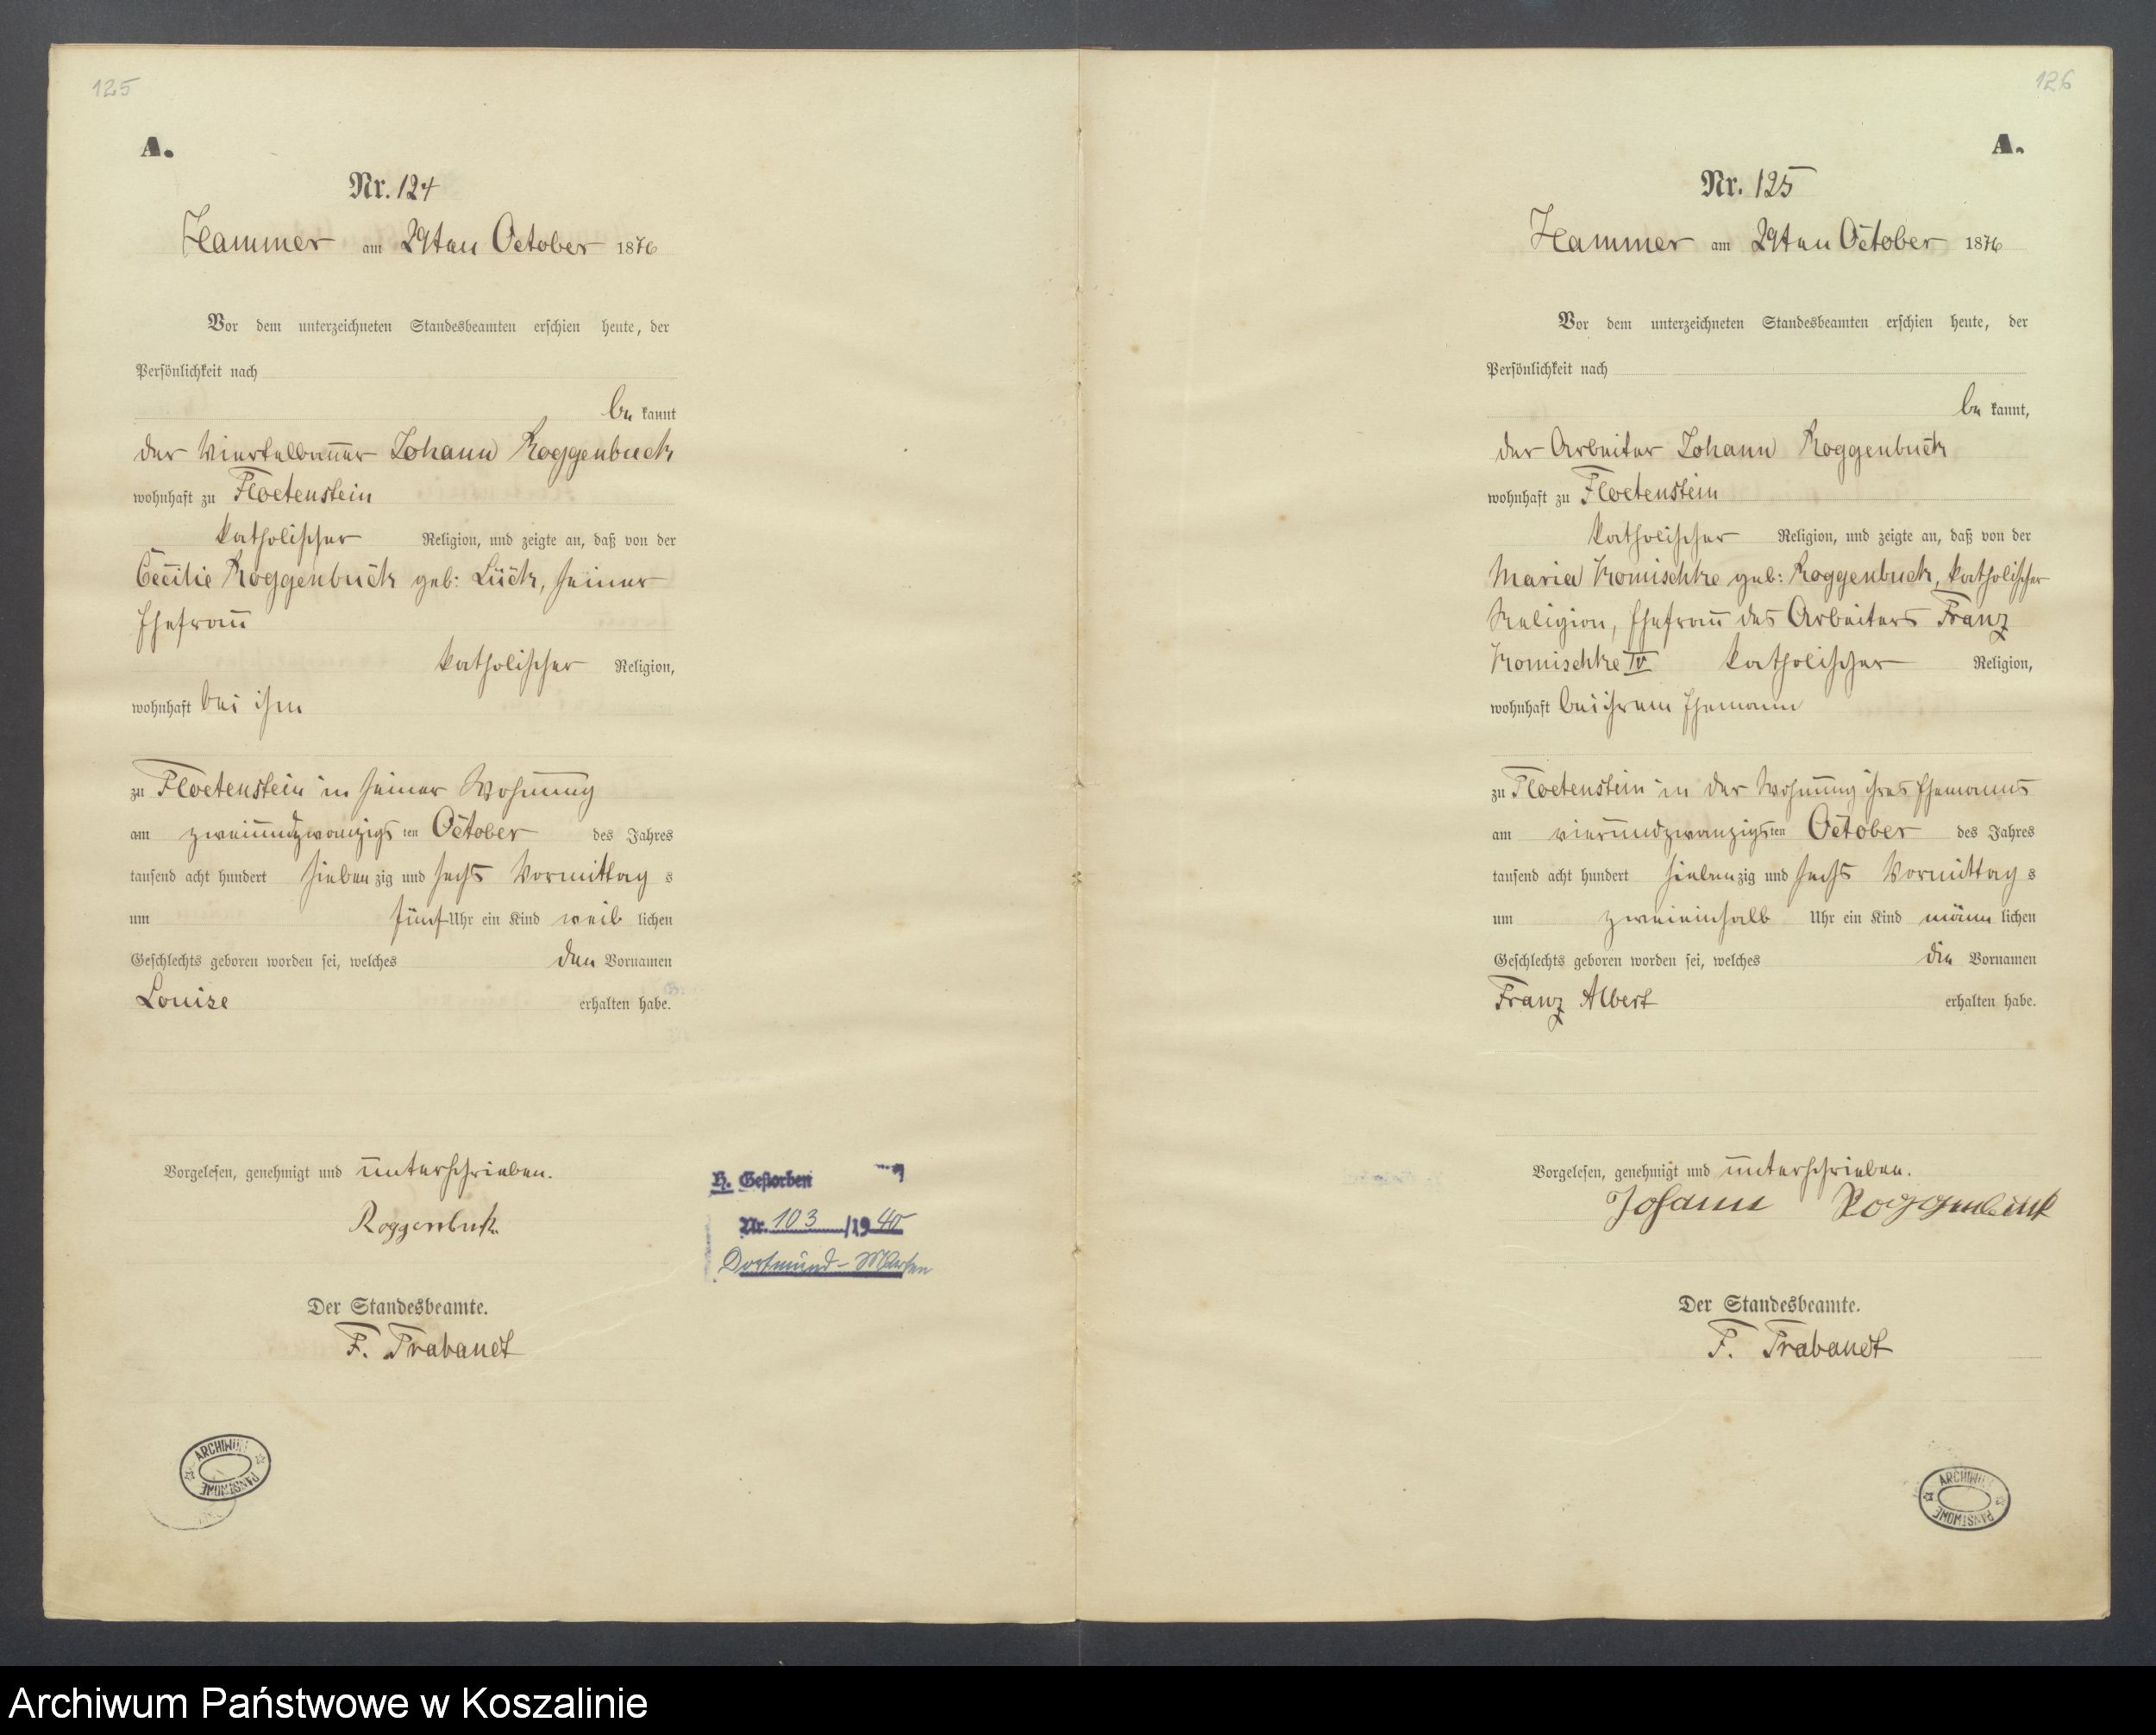 125
A.
Nr. 124
Hammer am 29ten October 1876
Vor dem unterzeichneten Standesbeamten erschien heute, der
Persönlichkeit nach
be kannt
der Viertelbauer Johann Roggenbuck
wohnhaft zu Floetenstein
katholischer Religion, und zeigte an, daß von der
Cecilie Roggenbuck geb: Lück, seiner
Ehefrau
katholischer Religion,
wohnhaft bei ihm
zu Floetenstein in seiner Wohnung
am zweiundzwanzigs ten October des Jahres
tausend acht hundert sieben zig und sechs Vormittag s
um fünf Uhr ein Kind weib lichen
Geschlechts geboren worden sei, welches den Vornamen
Louise erhalten habe.
Vorgelesen, genehmigt und unterschrieben.
Roggenbuk
Der Standesbeamte.
F. Trabandt
H. Gestorben
Nr. 103 /19 40
Dortmund - Marten
ARCHIWUM PAŃSTWOWE
126
A.
Nr. 125
Hammer am 29ten October 1876
Vor dem unterzeichneten Standesbeamten erschien heute, der
Persönlichkeit nach
be kannt,
der Arbeiter Johann Roggenbuck
wohnhaft zu Floetenstein
katholischer Religion, und zeigte an, daß von der
Maria Komischke geb: Roggenbuck, katholischer
Religion, Ehefrau des Arbeiters Franz
Komischke IV katholischer Religion,
wohnhaft bei ihrem Ehemann
zu Floetenstein in der Wohnung ihres Ehemanns
am vierundzwanzigs ten October des Jahres
tausend acht hundert sieben zig und sechs Vormittag s
um zweieinhalb Uhr ein Kind männ lichen
Geschlechts geboren worden sei, welches die Vornamen
Franz Albert erhalten habe.
Vorgelesen, genehmigt und unterschrieben.
Johann Roggenbuk
Der Standesbeamte.
F. Trabandt
ARCHIWUM PAŃSTWOWE
Archiwum Państwowe w Koszalinie